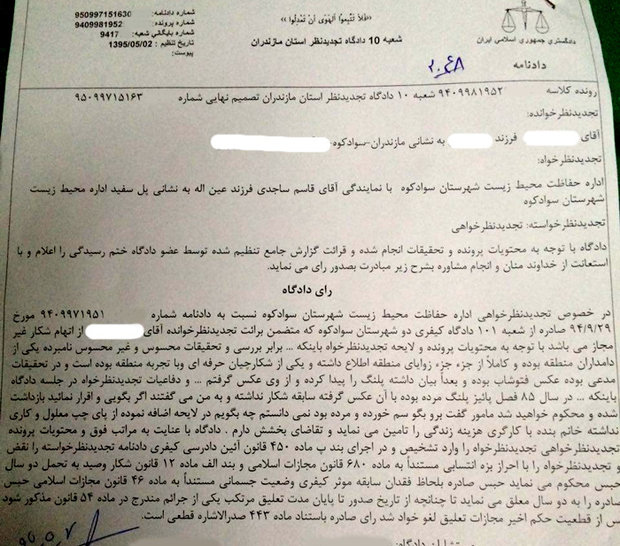 شماره دادنامه: 950997151630
شماره پرونده: 9409981952
شماره بایگانی شعبه: 9417
تاریخ تنظیم: 1395/05/02
پیوست:
«فَلا تَتَّبِعُوا الْهَوی اَنْ تَعْدِلُوا»
شعبه 10 دادگاه تجدیدنظر استان مازندران
دادگستری جمهوری اسلامی ایران
دادنامه
پرونده کلاسه ۹۴۰۹۹۸۱۹۵۲ شعبه ۱۰ دادگاه تجدیدنظر استان مازندران تصمیم نهایی شماره ۹۵۰۹۹۷۱۵۱۶۳
تجدیدنظرخوانده:
آقای فرزند به نشانی مازندران-سوادکوه-
تجدیدنظرخواه:
اداره حفاظت محیط زیست شهرستان سوادکوه با نمایندگی آقای قاسم ساجدی فرزند عین اله به نشانی پل سفید اداره محیط زیست
شهرستان سوادکوه
تجدیدنظرخواسته: تجدیدنظرخواهی
دادگاه با توجه به محتویات پرونده و تحقیقات انجام شده و قرائت گزارش جامع تنظیم شده توسط عضو دادگاه ختم رسیدگی را اعلام و با
استعانت از خداوند منان و انجام مشاوره بشرح زیر مبادرت بصدور رای می نماید.
رای دادگاه
در خصوص تجدیدنظرخواهی اداره حفاظت محیط زیست شهرستان سوادکوه نسبت به دادنامه شماره ۹۴۰۹۹۷۱۹۵۱ مورخ
۹۴/۹/۲۹ صادره از شعبه ۱۰۱ دادگاه کیفری دو شهرستان سوادکوه که متضمن برائت تجدیدنظرخوانده آقای از اتهام شکار غیر
مجاز می باشد با توجه به محتویات پرونده و لایحه تجدیدنظرخواه باینکه ... برابر بررسی و تحقیقات محسوس و غیر محسوس نامبرده یکی از
دامداران منطقه بوده و کاملاً از جزء جزء زوایای منطقه اطلاع داشته و یکی از شکارچیان حرفه ای وبا تجربه منطقه بوده است و در تحقیقات
مدعی بوده عکس فتوشاب بوده و بعداً بیان داشته پلنگ را پیدا کرده و از وی عکس گرفتم ... و دفاعیات تجدیدنظرخواه در جلسه دادگاه
باینکه ... در سال ۸۵ فصل پائیز پلنگ مرده بوده با آن عکس گرفته سابقه شکار نداشته و به من می گفتند اگر بگویی و اقرار نمائید بازداشت
شده و محکوم خواهید شد مامور گفت برو بگو سم خورده و مرده بود نمی دانستم چه بگویم در لایحه اضافه نموده از پای چپ معلول و کاری
نداشته خانم بنده با کارگری هزینه زندگی را تامین می نماید و تقاضای بخشش دارم . دادگاه با عنایت به مراتب فوق و محتویات پرونده
تجدیدنظرخواهی تجدیدنظرخواه را وارد تشخیص و در اجرای بند ب ماده ۴۵۰ قانون آئین دادرسی کیفری دادنامه تجدیدنظرخواسته را نقض
و تجدیدنظرخواه را با احراز بزه انتسابی مستنداً به ماده ۶۸۰ قانون مجازات اسلامی و بند الف ماده ۱۲ قانون شکار وصید به تحمل دو سال
حبس محکوم می نماید حبس صادره بلحاظ فقدان سابقه موثر کیفری وضعیت جسمانی مستنداً به ماده ۴۶ قانون مجازات اسلامی حبس
صادره را به دو سال معلق می نماید تا چنانچه از تاریخ صدور تا پایان مدت تعلیق مرتکب یکی از جرائم مندرج در ماده ۵۴ قانون مذکور شود
پس از قطعیت حکم اخیر مجازات تعلیق لغو خواد شد رای صادره باستناد ماده ۴۴۳ صدرالاشاره قطعی است.